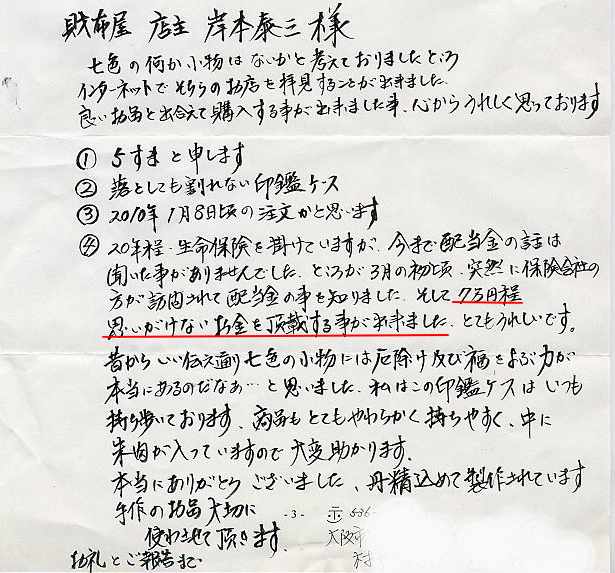 財布屋 店主 岸本泰三様
七色の何か小物はないかと考えておりましたところ
インターネットでそちらのお店を拝見することが出来ました。
良いお品と出会えて購入する事が出来ました事、心からうれしく思っております
① うすきと申します
② 落としても割れない印鑑ケース
③ 2010年1月8日頃の注文かと思います
④ 20年程、生命保険を掛けていますが、今まで配当金の話は
聞いた事がありませんでした、ところが3月の初め頃、突然に保険会社の
方が訪問されて配当金の事を知りました、そして7万円程
思いがけないお金を頂戴する事が出来ました、とてもうれしいです。
昔からいい伝え通り七色の小物には厄除け及び福をよぶ力が
本当にあるのだなぁ…と思いました、私はこの印鑑ケースはいつも
持ち歩いております、商品もとてもやわらかく持ちやすく、中に
朱肉が入っていますので大変助かります。
本当にありがとうございました、丹精込めて製作されています
手作のお品大切に
使わせて頂きます。
お礼とご報告まで
-3- 〒536-
大阪市